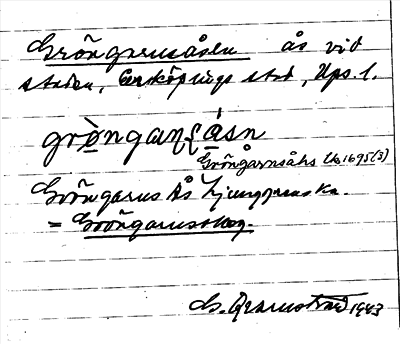 Gröngarnsåsen ås vid
staden, Enköpings stad, Ups. l.
grònganʂásn
Gröngårnsåhs Lk 1695(3)
Gröngarns Ås Ljunggrens ka.
= Gröngarnsskog.
1943